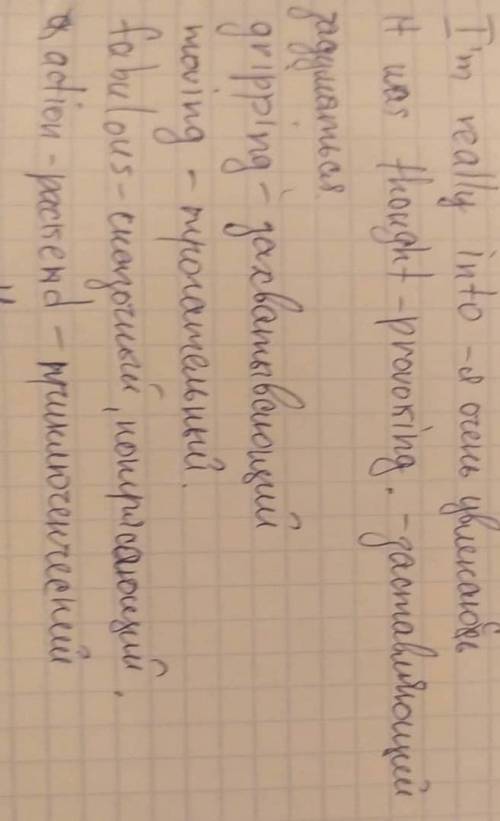 I'm really into - я очень увлекаюсь
It was thought-provoking. - заставляющий
задуматься
gripping - захватывающий
moving - трогательный.
fabulous - сказочный, потрясающий.
action-packed - приключенческий